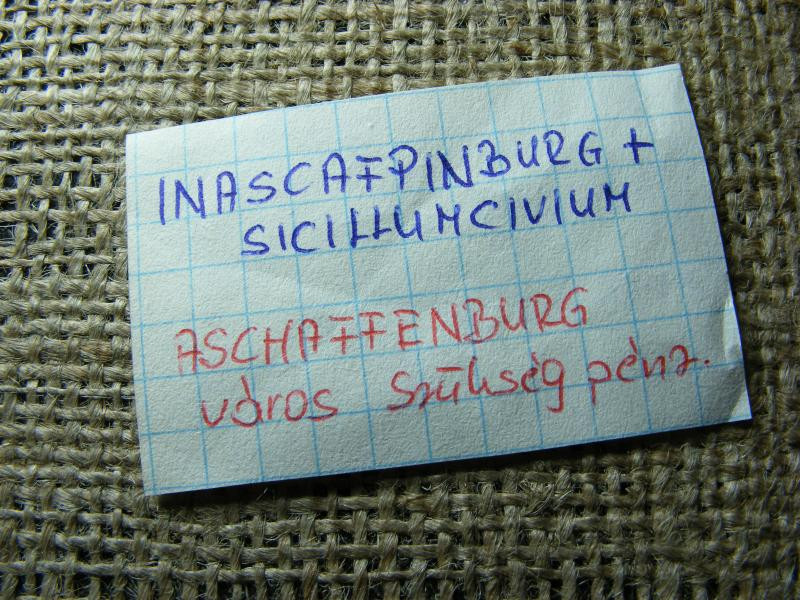 INASCAFPINBURG +
SICILLUMCIVIUM
ASCHAFFENBURG
város szükség pénz.